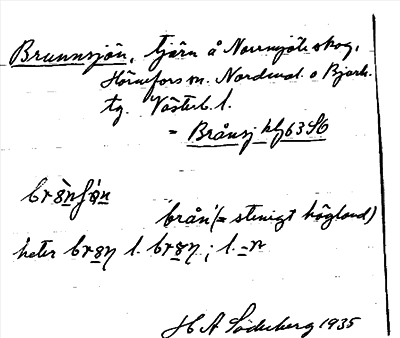 Brunnsjön, tjärn å Norrmjöle skog,
Hörnefors sn. Nordmal. o Bjurh.
tg. Västerb. l.
= Brånsj hlf 63 SO
'brån' (= stenigt högland)
heter l. ; l. -n
H A Söderberg 1935